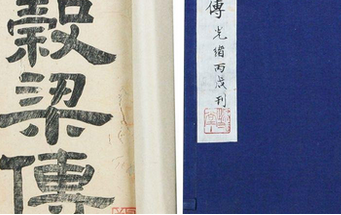 穀梁傳
傳光緒丙戌刊